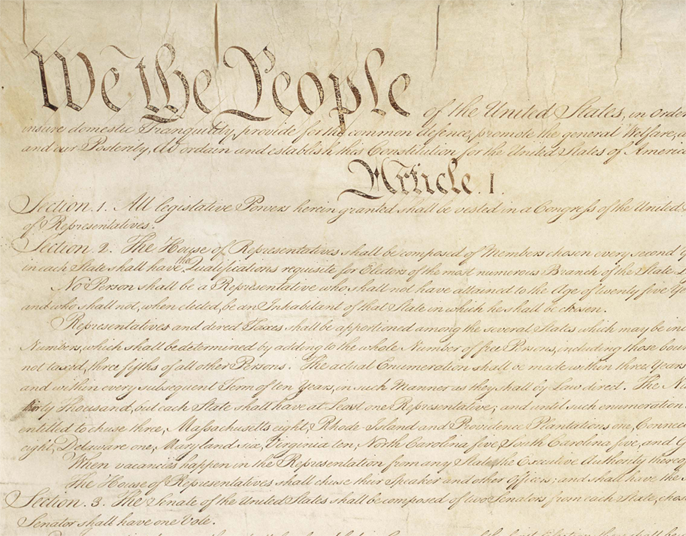 We the People of the United States, in Order
insure domestic Tranquility, provide for the common defence, promote the general Welfare, a
and our Posterity, do ordain and establish this Constitution for the United States of America
Article. I.
Section. 1. All legislative Powers herein granted shall be vested in a Congress of the United
of Representatives.
Section. 2. The House of Representatives shall be composed of Members chosen every second Y
in each State shall have the Qualifications requisite for Electors of the most numerous Branch of the State
No Person shall be a Representative who shall not have attained to the Age of twenty five Ye
and who shall not, when elected, be an Inhabitant of that State in which he shall be chosen.
Representatives and direct Taxes shall be apportioned among the several States which may be in
Numbers, which shall be determined by adding to the whole Number of free Persons, including those bou
not taxed, three fifths of all other Persons. The actual Enumeration shall be made within three Years
and within every subsequent Term of ten Years, in such Manner as they shall by Law direct. The N
thirty Thousand, but each State shall have at Least one Representative; and until such enumeration
entitled to chuse three, Massachusetts eight, Rhode Island and Providence Plantations one, Connec
eight, Delaware one, Maryland six, Virginia ten, North Carolina five, South Carolina five, and G
When vacancies happen in the Representation from any State, the Executive Authority thereo
The House of Representatives shall chuse their Speaker and other Officers; and shall have the
Section. 3. The Senate of the United States shall be composed of two Senators from each State, chose
Senator shall have one Vote.